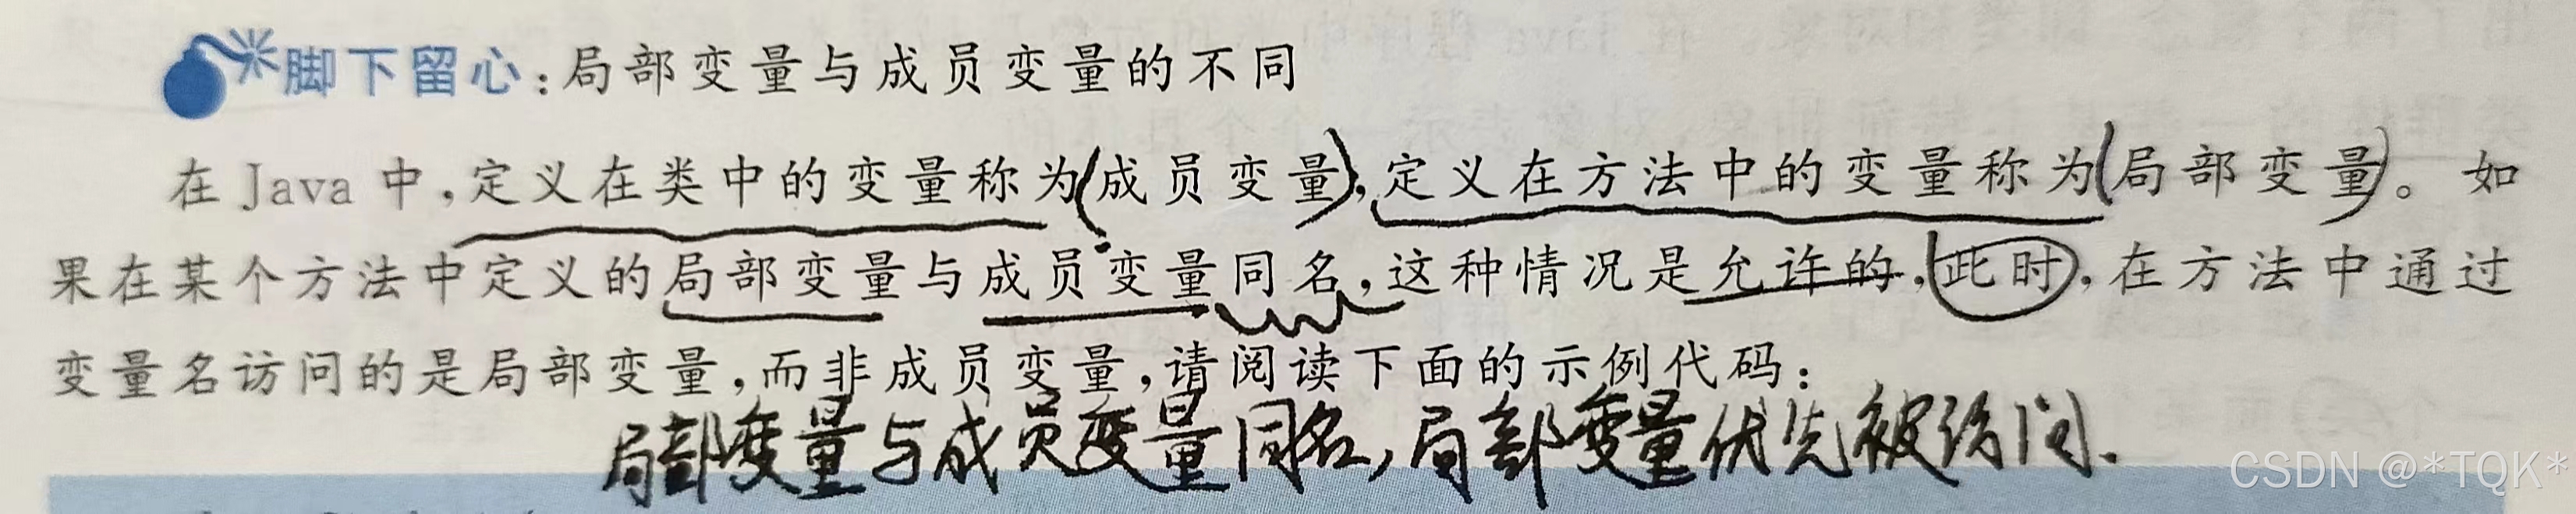 脚下留心：局部变量与成员变量的不同
在Java中，定义在类中的变量称为(成员变量)，定义在方法中的变量称为(局部变量)。如
果在某个方法中定义的局部变量与成员变量同名，这种情况是允许的，此时，在方法中通过
变量名访问的是局部变量，而非成员变量，请阅读下面的示例代码：
局部变量与成员变量同名，局部变量优先被访问.
CSDN @*TQK*